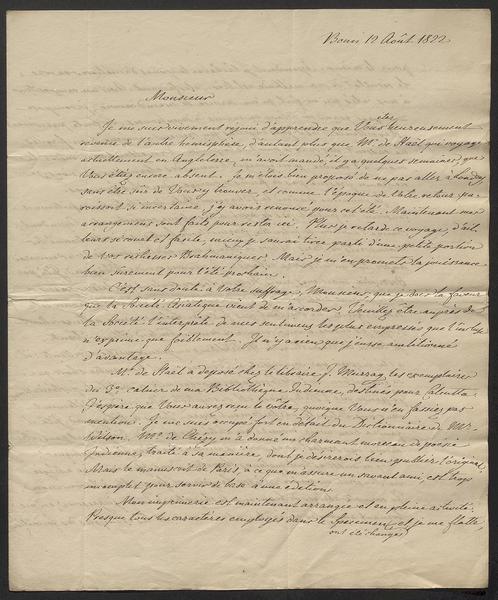 Bonn 12 Août 1822
Monsieur
Je me suis vivement rejoui d'apprendre que Vous êtes heureusement
revenu de l'autre hemisphère, d'autant plus que Mr. de Staël qui voyage
actuellement en Angleterre, m'avoit mandé, il y a quelques semaines, que
Vous étiez encore absent. Je m'étois bien proposé de ne pas aller à Londres
sans être sûr de Vous y trouver, et comme l'époque de Votre retour pa-
roissoit si incertaine, j'y avois renoncé pour cet été. Maintenant mes
arrangemens sont faits pour rester ici. Plus je retarde ce voyage, d'ail-
leurs si court et facile, mieux je saurai tirer parti d'une petite portion
de vos richesses Brahmaniques. Mais je m'en promets la jouissance
bien surement pour l'été prochain.
C'est sans doute à Votre suffrage, Monsieur, que je dois la faveur
que la Société Asiatique vient de m'accorder. Veuillez être auprès de
la Société l'interprète de mes sentimens les plus empressés que
n'exprime que foiblement. Il n'y a rien que j'eusse ambitionné
d'avantage.
Mr. de Staël a déposé chez le libraire J. Murray, les exemplaires
du 3e cahier de ma Bibliothèque Indienne, destinés pour Calcutta.
J'espère que Vous aurez reçu le vôtre, quoique Vous n'en fassiez pas
mention. Je me suis occupé fort en détail du Dictionnaire de Mr.
Wilson. Mr. de Chézy m'a donné un charmant morceau de poésie
Indienne, traité à sa manière, dont je désirerois bien publier l'original.
Mais le manuscrit de Paris, à ce que m'assure un savant ami, est trop
incomplet pour servir de base à une édition.
Mon imprimerie est maintenant arrangée et en pleine activité.
Presque tous les caractères employés dans le Specimen ont été changés, et je me flatte,